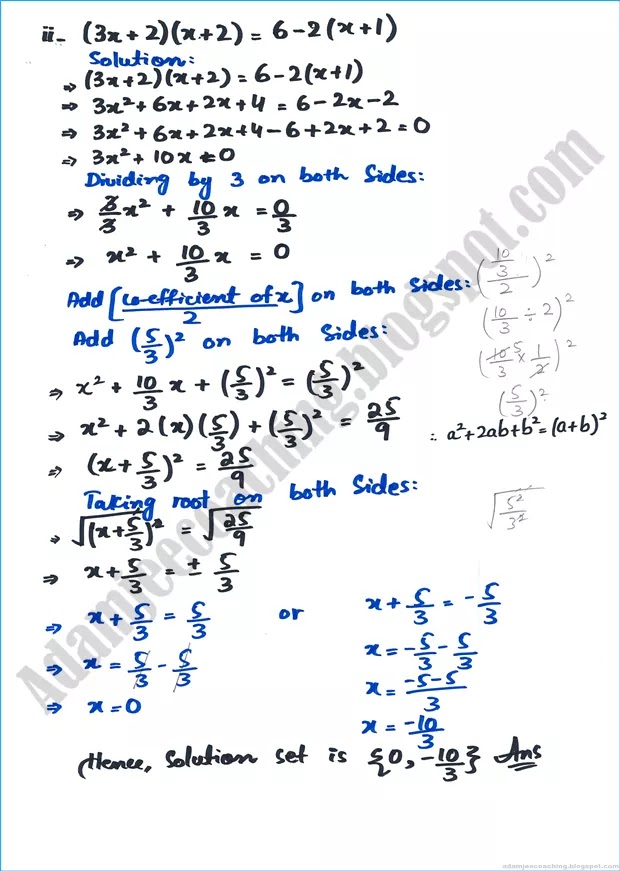 ii- (3x+2)(x+2) = 6-2(x+1)
Solution:
⇒ (3x+2)(x+2) = 6-2(x+1)
⇒ 3x²+6x+2x+4 = 6-2x-2
⇒ 3x²+6x+2x+4-6+2x+2=0
⇒ 3x²+10x=0
Dividing by 3 on both Sides:
⇒ 3/3 x² + 10/3 x = 0/3
⇒ x² + 10/3 x = 0
Add [co-efficient of x / 2] on both Sides:
Add (5/3)² on both Sides:
⇒ x² + 10/3 x + (5/3)² = (5/3)²
⇒ x² + 2(x)(5/3) + (5/3)² = 25/9
∴ a²+2ab+b²=(a+b)²
⇒ (x+5/3)² = 25/9
Taking root on both Sides:
⇒ √(x+5/3)² = √25/9
⇒ x+5/3 = ± 5/3
⇒ x+5/3 = 5/3 or x+5/3 = -5/3
⇒ x = 5/3 - 5/3
x = -5/3 - 5/3
⇒ x=0
x = -5-5/3
x = -10/3
Hence, Solution set is {0, -10/3} Ans
((10/3)/2)²
(10/3 ÷ 2)²
(10/3 5 × 1/2)²
(5/3)²
√5²/3²
Adamjeecoaching.blogspot.com
adamjeecoaching.blogspot.com